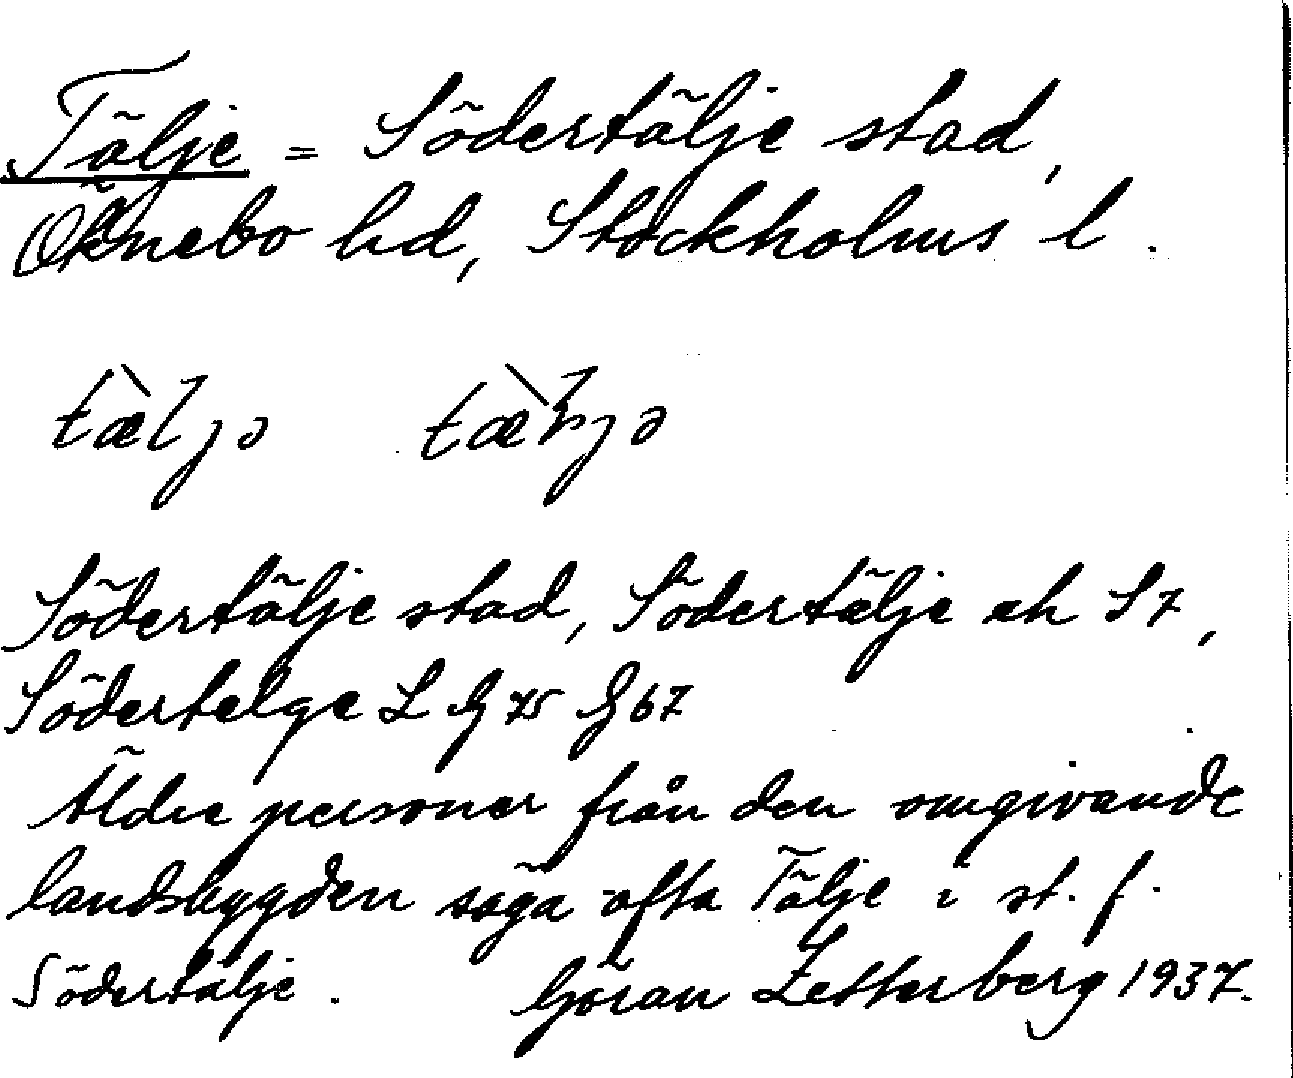 Tälje = Södertälje stad,
Öknebo hd, Stockholms l.
tæ̀ljə tæ̀ljə
Södertälje stad, Södertälje ek S7,
Södertelge L G 75 G 67
Äldre personer från den omgivande
landsbygden säga ofta Tälje i st. f.
Södertälje. Göran Zetterberg 1937.